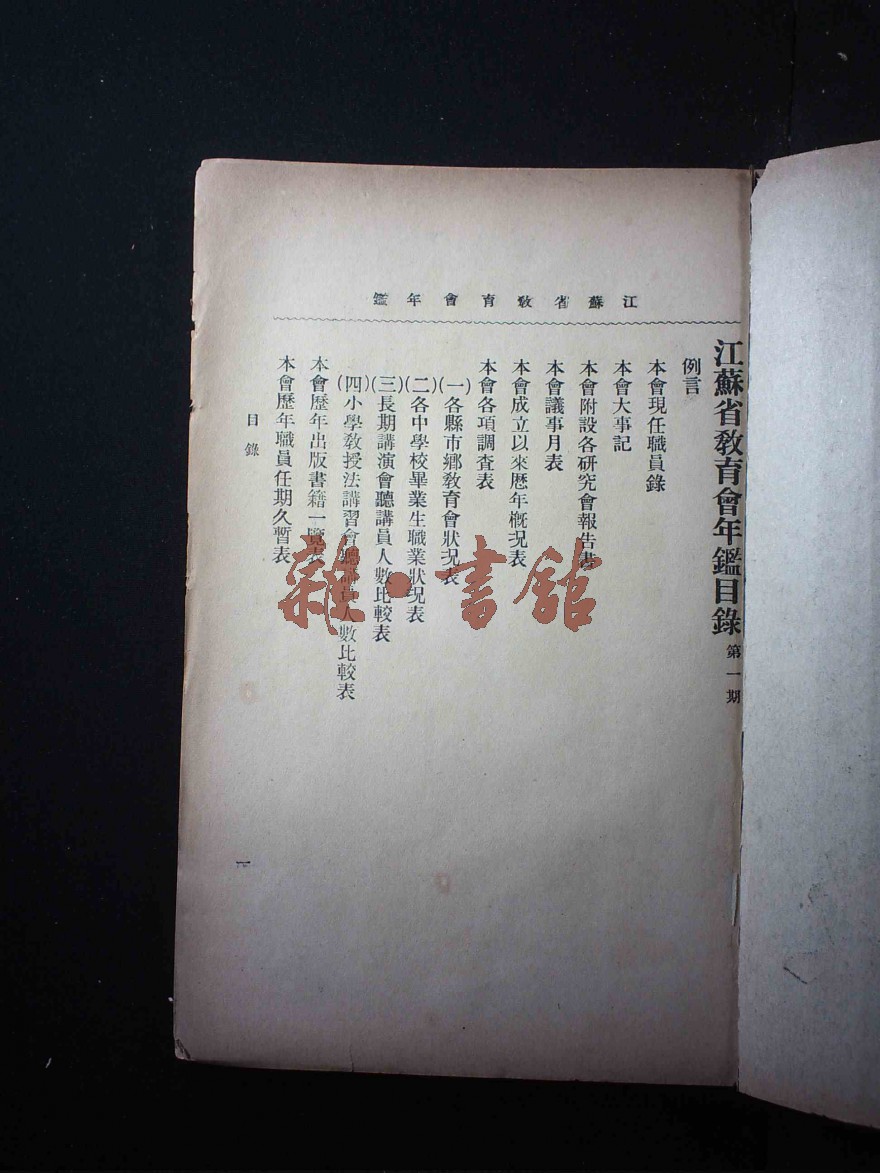 江蘇省教育會年鑑
江蘇省教育會年鑑目錄 第一期
例言
本會現任職員錄
本會大事記
本會附設各研究會報告書
本會議事月表
本會成立以來歷年概况表
本會各項調查表
(一)各縣市鄉教育會狀况表
(二)各中學校畢業生職業狀况表
(三)長期講演會聽講員人數比較表
(四)小學教授法講習會聽講員人數比較表
本會歷年出版書籍一覽表
本會歷年職員任期久暫表
目錄
一
雜·書館